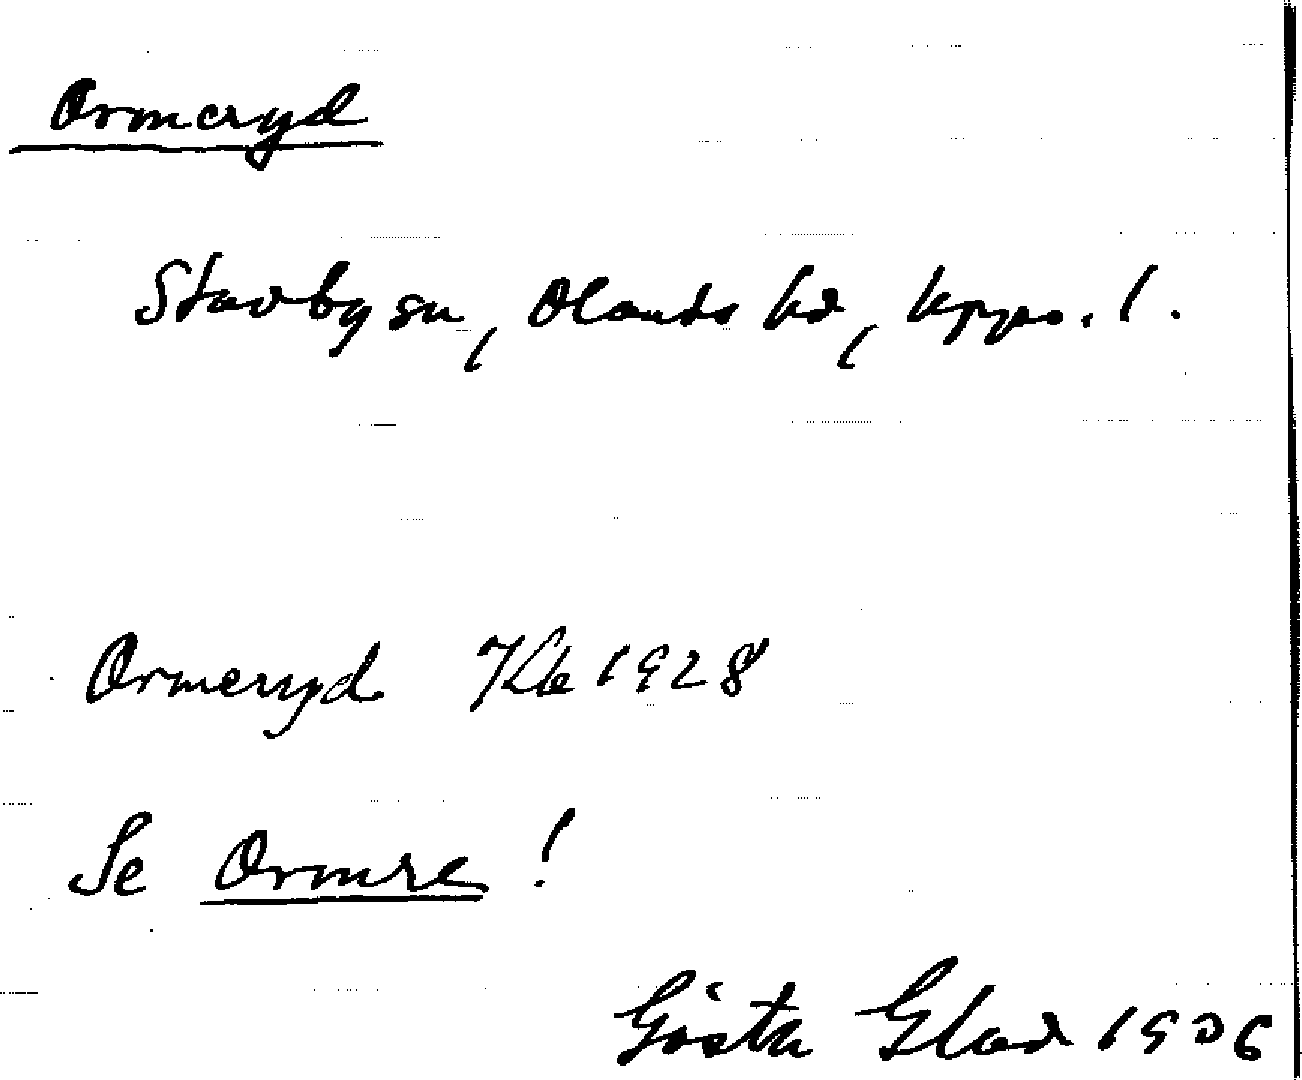 Ormeryd
Stavby sn, Olands hd, Upps. l.
Ormeryd Kb 1928
Se Ormre !
Gösta Glad 1936